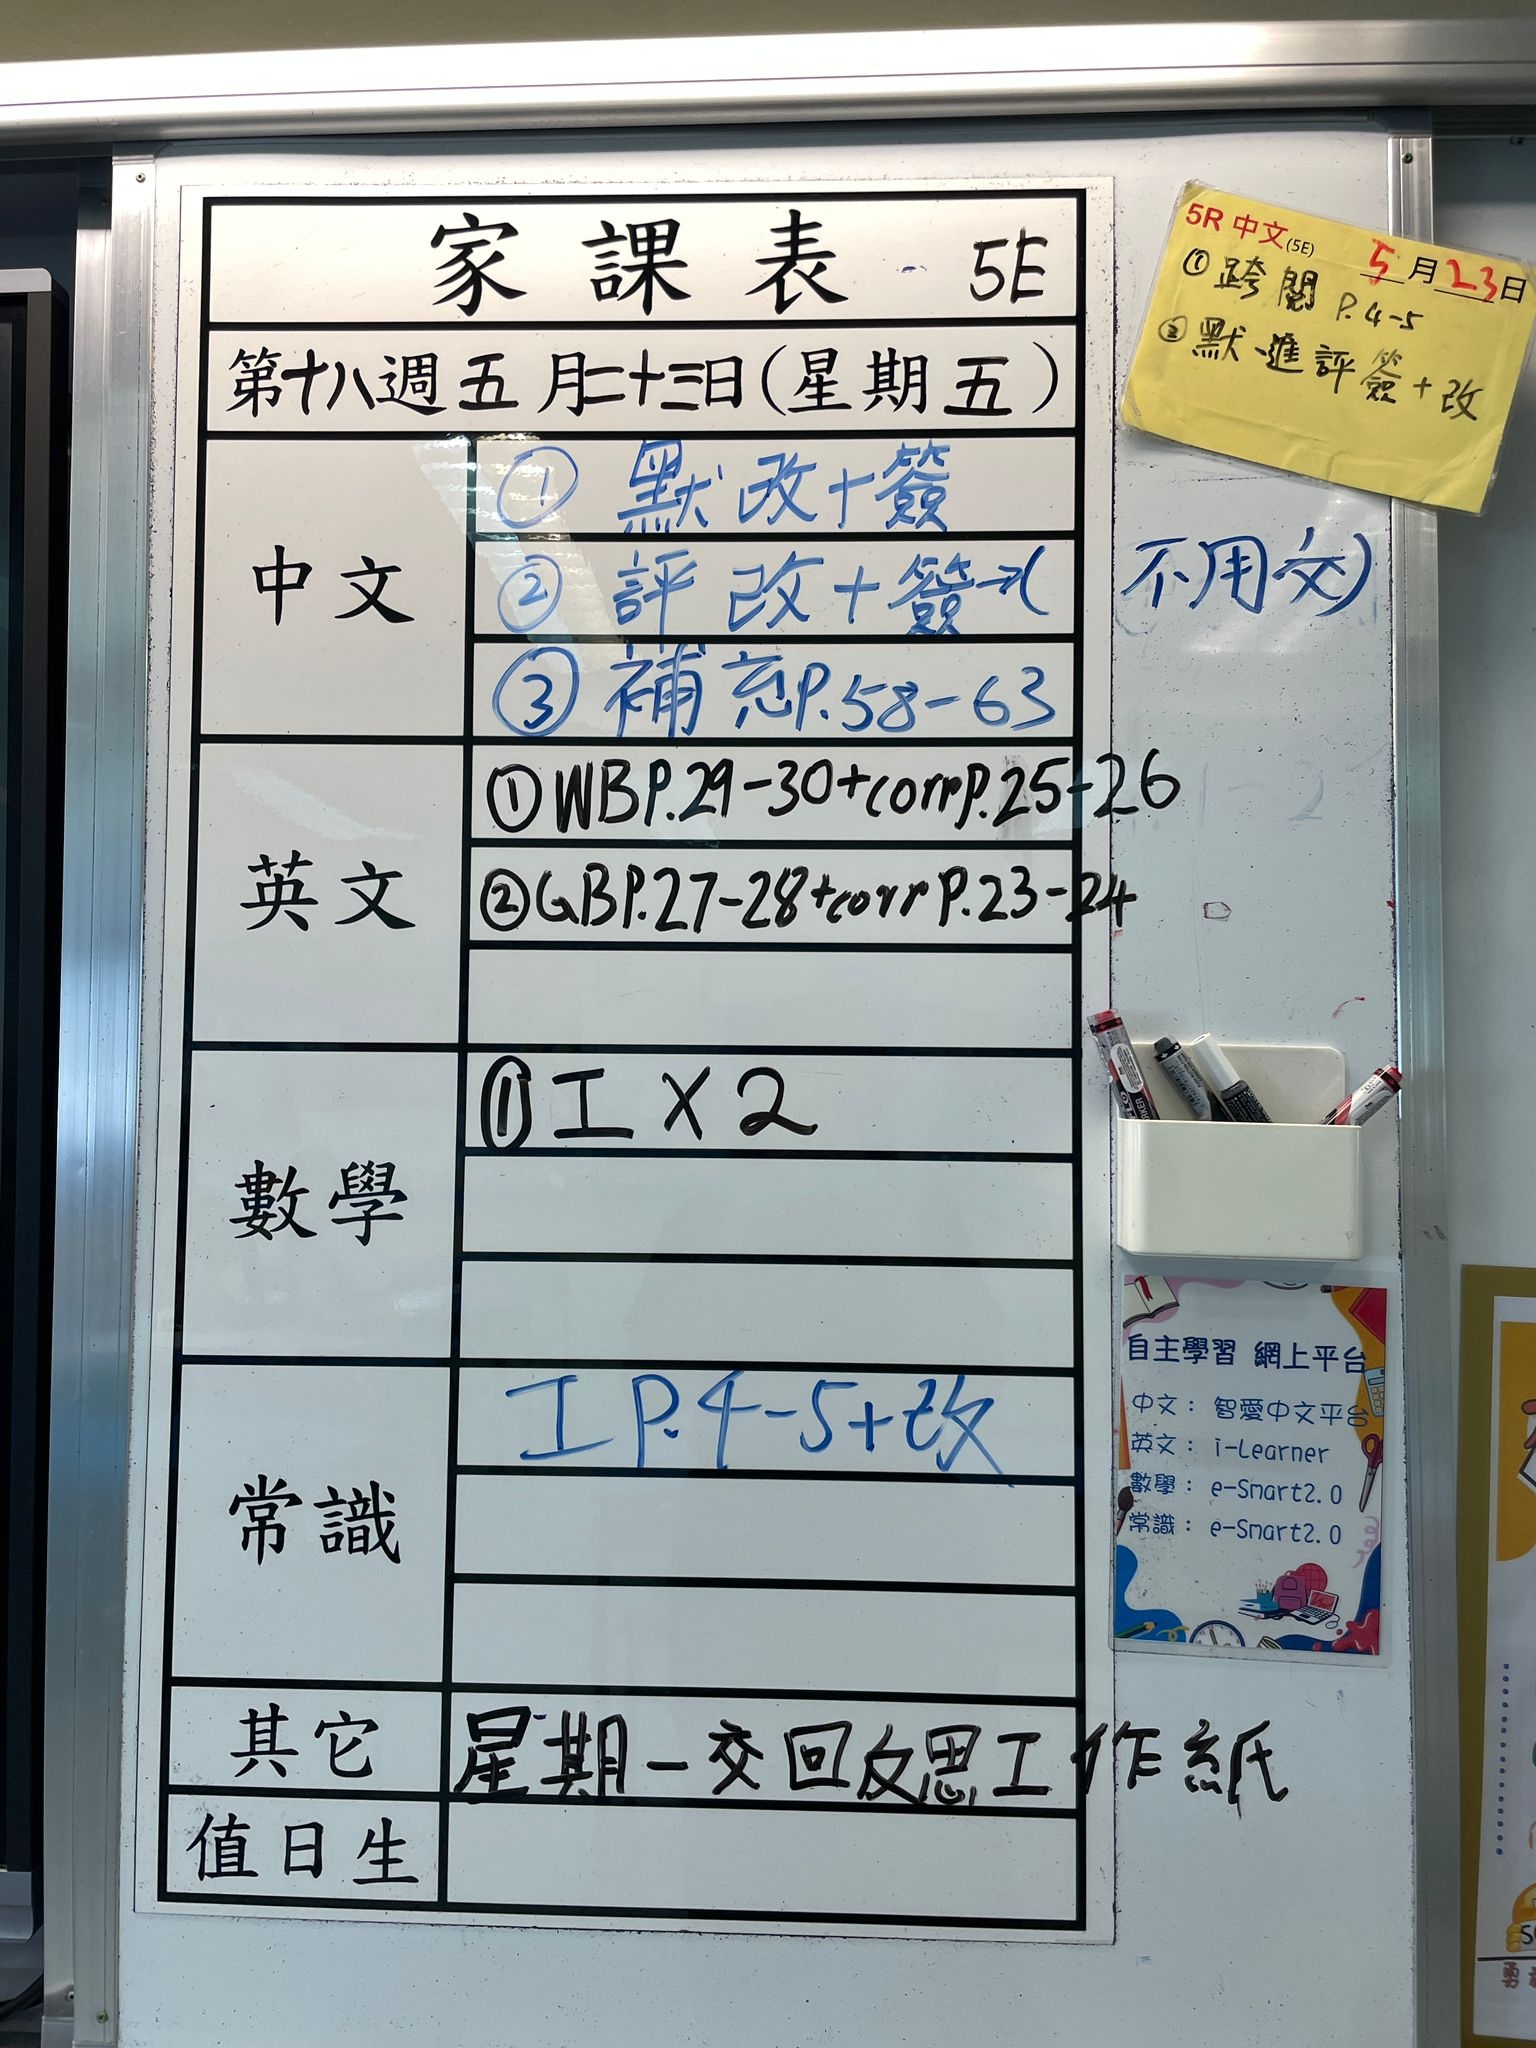 家課表 5E
第十八週五月二十三日(星期五)
中文
① 默改+簽
② 評改+簽→(不用交)
③ 補充P.58-63
英文
① WB P.29-30+corr P.25-26
② GB P.27-28+corr P.23-24
數學
① 工 X 2
常識
工 P.4-5+改
其它
星期一交回反思工作紙
值日生
5R 中文(5E) 5月23日
① 跨閱 P.4-5
② 默、進評簽+改
自主學習 網上平台
中文: 智愛中文平台
英文: i-Learner
數學: e-Smart2.0
常識: e-Smart2.0